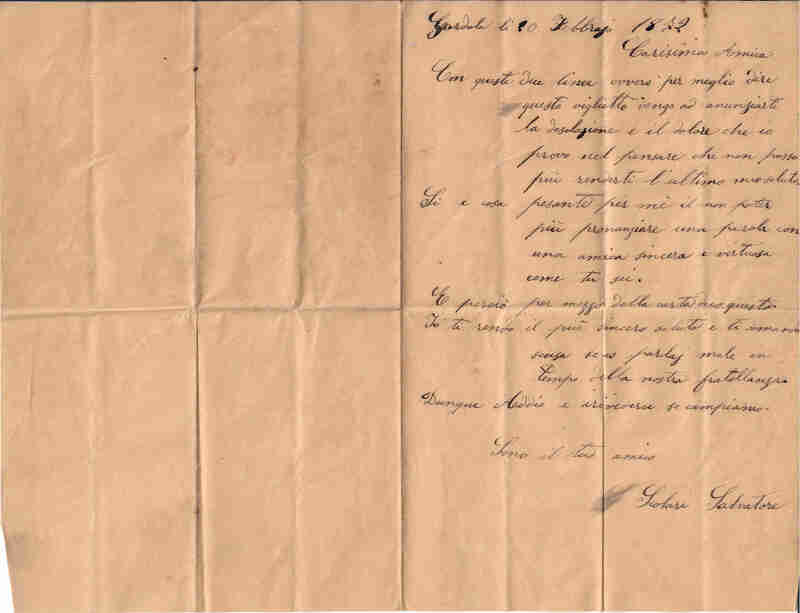 Gordola li 20 Febbrajo 1882
Carisima Amica
Con queste due linee ovvero per meglio dire
questo viglietto vengo ad anunziarti
la desolazione e il dolore che io
provo nel pensare che non posso
più renderti l'ultimo mio saluto
Si e cosa pesante per mè il non poter
più pronunziare una parola con
una amica sincera e virtuosa
come tu sei.
E perciò per mezzo della carta
Io ti rendo il più sincero saluto e ti
scusa se parlaj male in
tempo della nostra fratellanza
Dunque Addio e se campiamo.
Sono il tuo amico
Scolari Salvatore